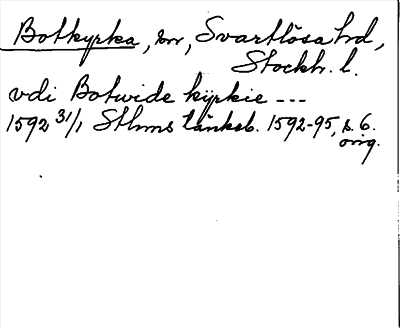 Botkyrka, sn, Svartlösa hd,
Stockh. l.
vdi Botwide kÿrkie ---
1592 31/1 Sthms tänkeb. 1592-95, s. 6.
orig.